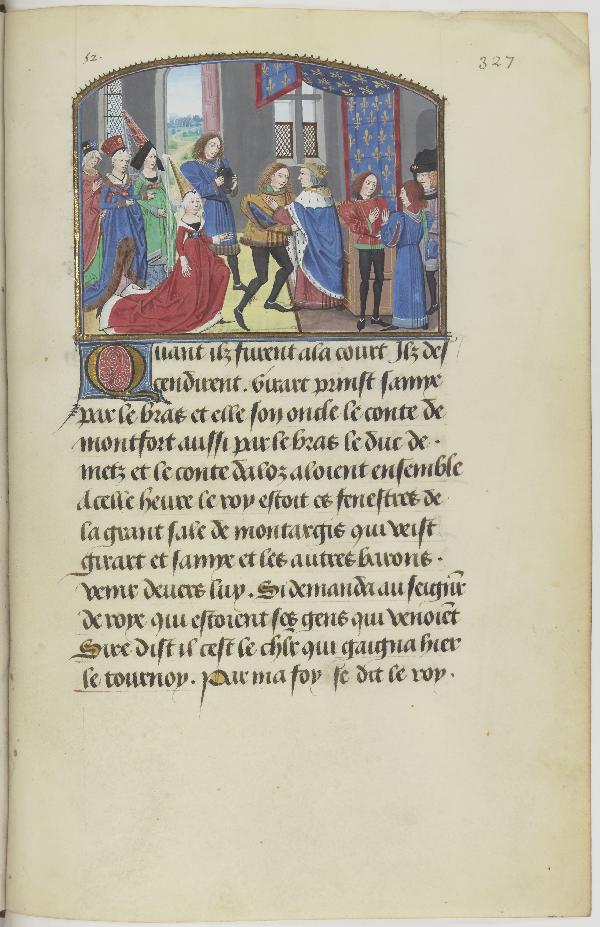 52.
327
Quant ilz furent a la court Ilz des
cendirent. Girart prinst samye
par le bras et elle son oncle le conte de
montfort aussi par le bras le duc de
metz et le conte daloz aloient ensemble
A celle heure le roy estoit es fenestres de
la grant sale de montargis qui veist
girart et samye et les autres barons.
venir devers luy. Si demanda au seignr
de roye qui estoient ses gens qui venoiet
Sire dist il cest le chlr qui gaigna hier
le tournoy. Par ma foy se dit le roy.